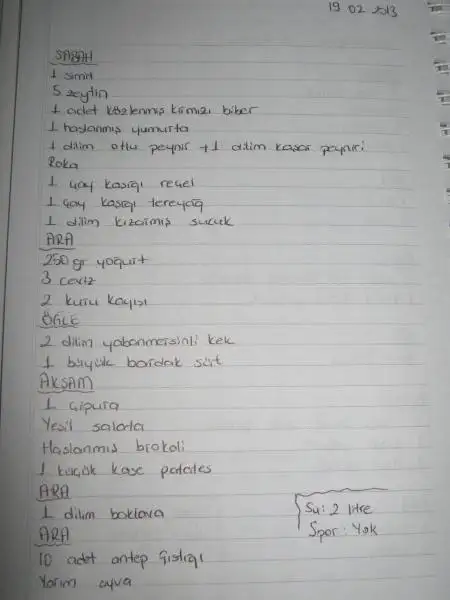 19 02 2013
SABAH
1 simit
5 zeytin
1 adet közlenmiş kırmızı biber
1 haşlanmış yumurta
1 dilim otlu peynir + 1 dilim kaşar peyniri
Roka
1 çay kaşığı reçel
1 çay kaşığı tereyağ
1 dilim kızarmış sucuk
ARA
250 gr yoğurt
3 ceviz
2 kuru kayısı
ÖĞLE
2 dilim yabanmersinli kek
1 büyük bardak süt
AKŞAM
1 çipura
Yeşil salata
Haşlanmış brokoli
1 küçük kase patates
ARA
1 dilim baklava
Su: 2 litre
Spor: Yok
ARA
10 adet antep fıstığı
Yarım ayva